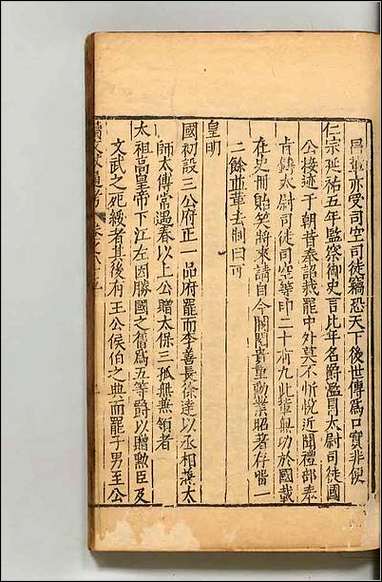 昌輩亦受司空司徒竊恐天下後世傳為口實非便
仁宗延祐五年監察御史言比年名爵濫司太尉司徒國
公接迹于朝昔奉詔裁罷中外莫不忻悅近聞禮部奉
旨鑄太尉司徒司空等印二十有九此輩無功於國載
在史冊貽笑將來請自今門閥貴重勳業昭著存留一
二餘並革去制曰可
皇明
國初設三公府正一品府罷而李善長徐達以丞相兼太
師太傅常遇春以上公贈太保三孤無兼領者
太祖高皇帝下江左因勝國之舊為五等爵以贈勲臣及
文武之死綏者其後有王公侯伯之典而罷子男王公
續文獻通考